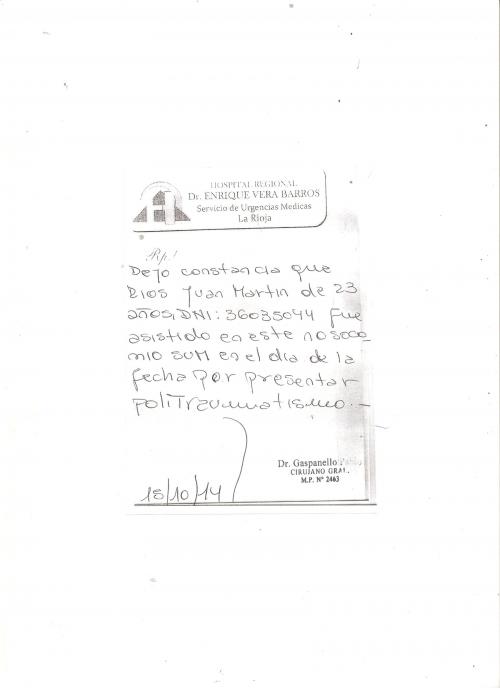 HOSPITAL REGIONAL
Dr. ENRIQUE VERA BARROS
Servicio de Urgencias Medicas
La Rioja
Rp!
Dejo constancia que
Rios Juan Martin de 23
años, DNI: 36035044 fue
asistido en este nosoco_
mio SUM en el dia de la
fecha por presentar
poliTraumatismo.-
Dr. Gaspanello
CIRUJANO GRAL.
M.P. Nº 2463
18/10/14